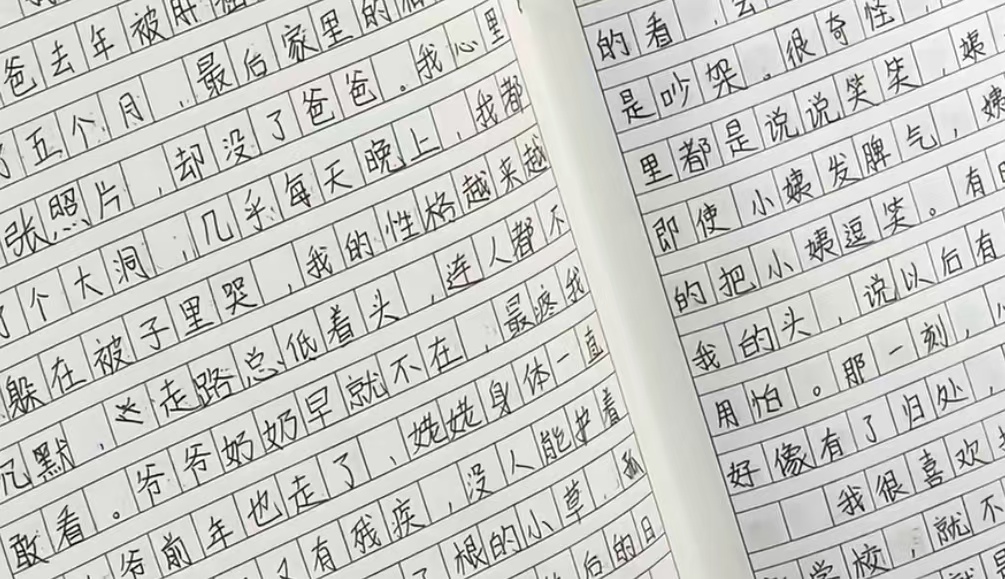 爸去年被肝
五个月，最后家里的
张照片，却没了爸爸。我心里
个大洞，几乎每天晚上，我都
躲在被子里哭，我的性格越来越
沉默，走路总低着头，连人都不
敢看。爷爷奶奶早就不在，最疼我
爷前年也走了，姥姥身体一直
又有残疾，没人能护着
根的小草，孤
后的日
的看，去
是吵架。很奇怪，
里都是说说笑笑，姨
即使小姨发脾气，姨
的把小姨逗笑。有
我的头，说以后有
用怕。那一刻，
好像有了归处，
我很喜欢
学校，就不